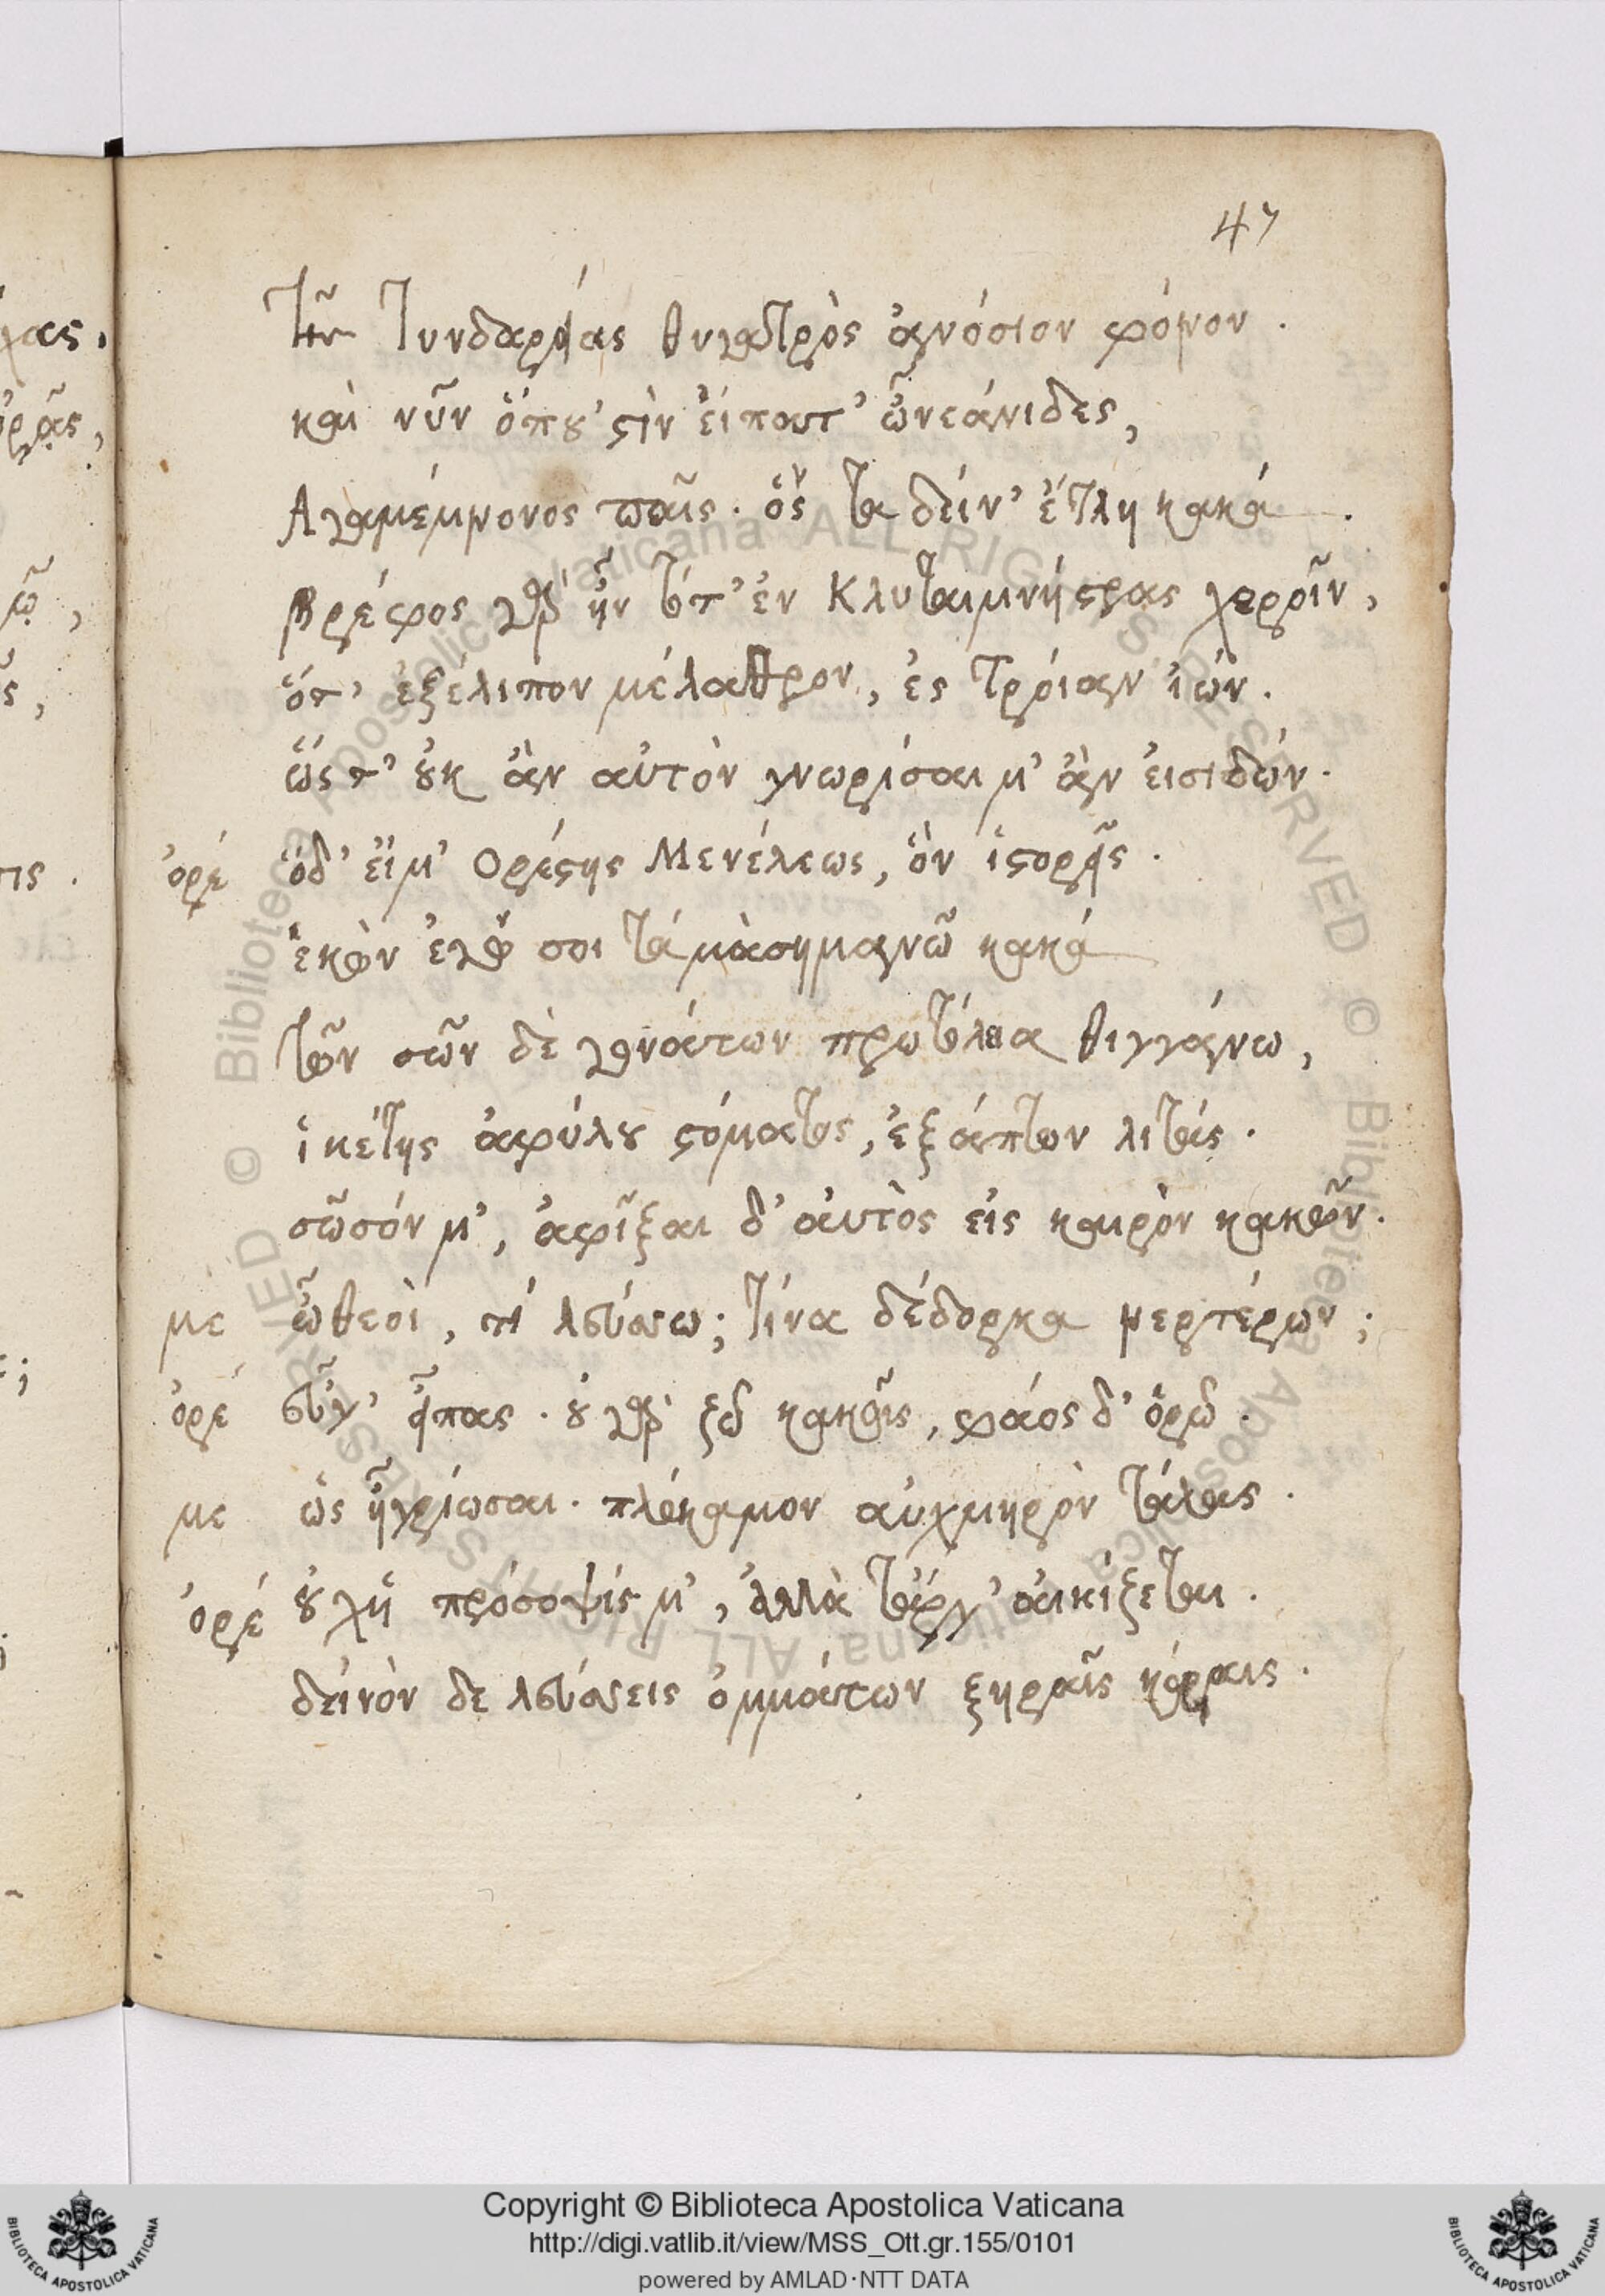 47
τῆς Τυνδαρείας θυγατρὸς ἀνόσιον φόνον.
καὶ νῦν ὅπου 'στὶν εἴπατ' ὦ νεάνιδες,
Ἀγαμέμνονος παῖς. ὃς τὰ δείν' ἔτλη κακά.
βρέφος γὰρ ἦν τότ' ἐν Κλυταιμνήστρας χεροῖν,
ὅτ' ἐξέλιπον μέλαθρον, ἐς Τροίαν ἰών.
ὥστ' οὐκ ἂν αὐτὸν γνωρίσαιμ' ἂν εἰσιδών.
ὀρέ ὅδ' εἴμ' Ὀρέστης Μενέλεως, ὃν ἱστορεῖς.
ἑκὼν ἐγώ σοι τἀμὰ σημανῶ κακά
τῶν σῶν δὲ γονάτων πρωτόλεια θιγγάνω,
ἱκέτης ἀφύλου στόματος, ἐξάπτων λιτάς.
σῶσόν μ', ἀφῖξαι δ' αὐτὸς εἰς καιρὸν κακῶν.
με ὦ θεοὶ, τί λεύσσω; τίνα δέδορκα νερτέρων;
ὀρέ εὖ γ' εἶπας. οὐ γὰρ ζῶ κακοῖς, φάος δ' ὁρῶ.
με ὡς ἠγρίωσαι. πλόκαμον αὐχμηρὸν τάλας.
ὀρέ οὐχ ἡ πρόσοψίς μ', ἀλλὰ τἄργ' αἰκίζεται.
δεινὸν δε λεύσσεις ὀμμάτων ξηραῖς κόραις.
Copyright © Biblioteca Apostolica Vaticana
http://digi.vatlib.it/view/MSS_Ott.gr.155/0101
powered by AMLAD·NTT DATA